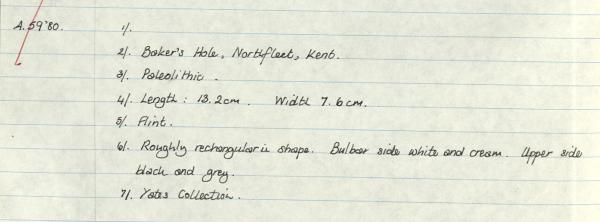 A.59'80.
1/.
2/. Baker's Hole, Northfleet, Kent.
3/. Paleolithic.
4/. Length: 13.2cm. Width 7.6cm.
5/. Flint.
6/. Roughly rechangular in shape. Bulbar side white and cream. Upper side
black and grey.
7/. Yates Collection.